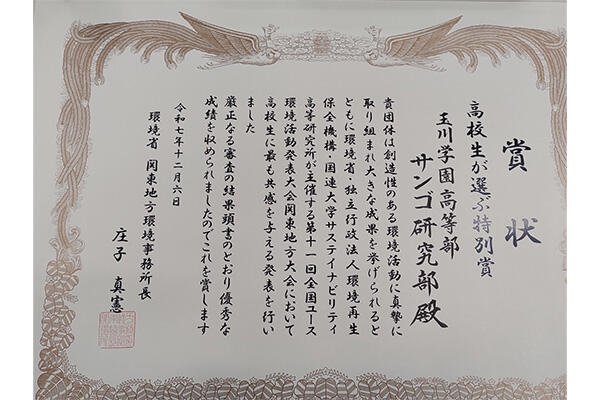 賞状
高校生が選ぶ特別賞
玉川学園高等部
サンゴ研究部殿
貴団体は創造性のある環境活動に真摯に
取り組まれ大きな成果を挙げられると
ともに環境省・独立行政法人環境再生
保全機構・国連大学サステイナビリティ
高等研究所が主催する第十一回全国ユース
環境活動発表大会関東地方大会において
高校生に最も共感を与える発表を行い
ました
厳正なる審査の結果頭書のとおり優秀な
成績を収められましたのでこれを賞します
令和七年十二月六日
環境省 関東地方環境事務所長
庄子 真憲